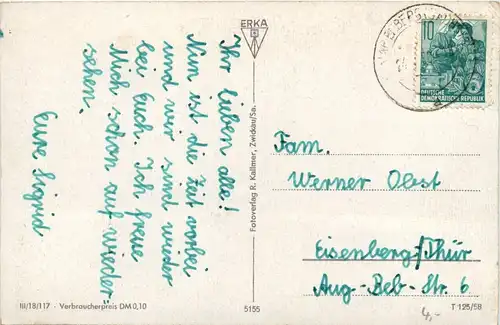 Ihr lieben alle!
Nun ist die Zeit vorbei
und wir sind wieder
bei Euch. Ich freue
Mich schon auf wieder-
sehen.
Eure Sigrid
ERKA
Fotoverlag R. Kallmer, Zwickau/Sa.
10
DEUTSCHE
DEMOKRATISCHE REPUBLIK
Fam.
Werner Obst
Eisenberg/Thür
Aug-Beb-Str. 6
4,-
III/18/117 - Verbraucherpreis DM 0,10
5155
T 125/58